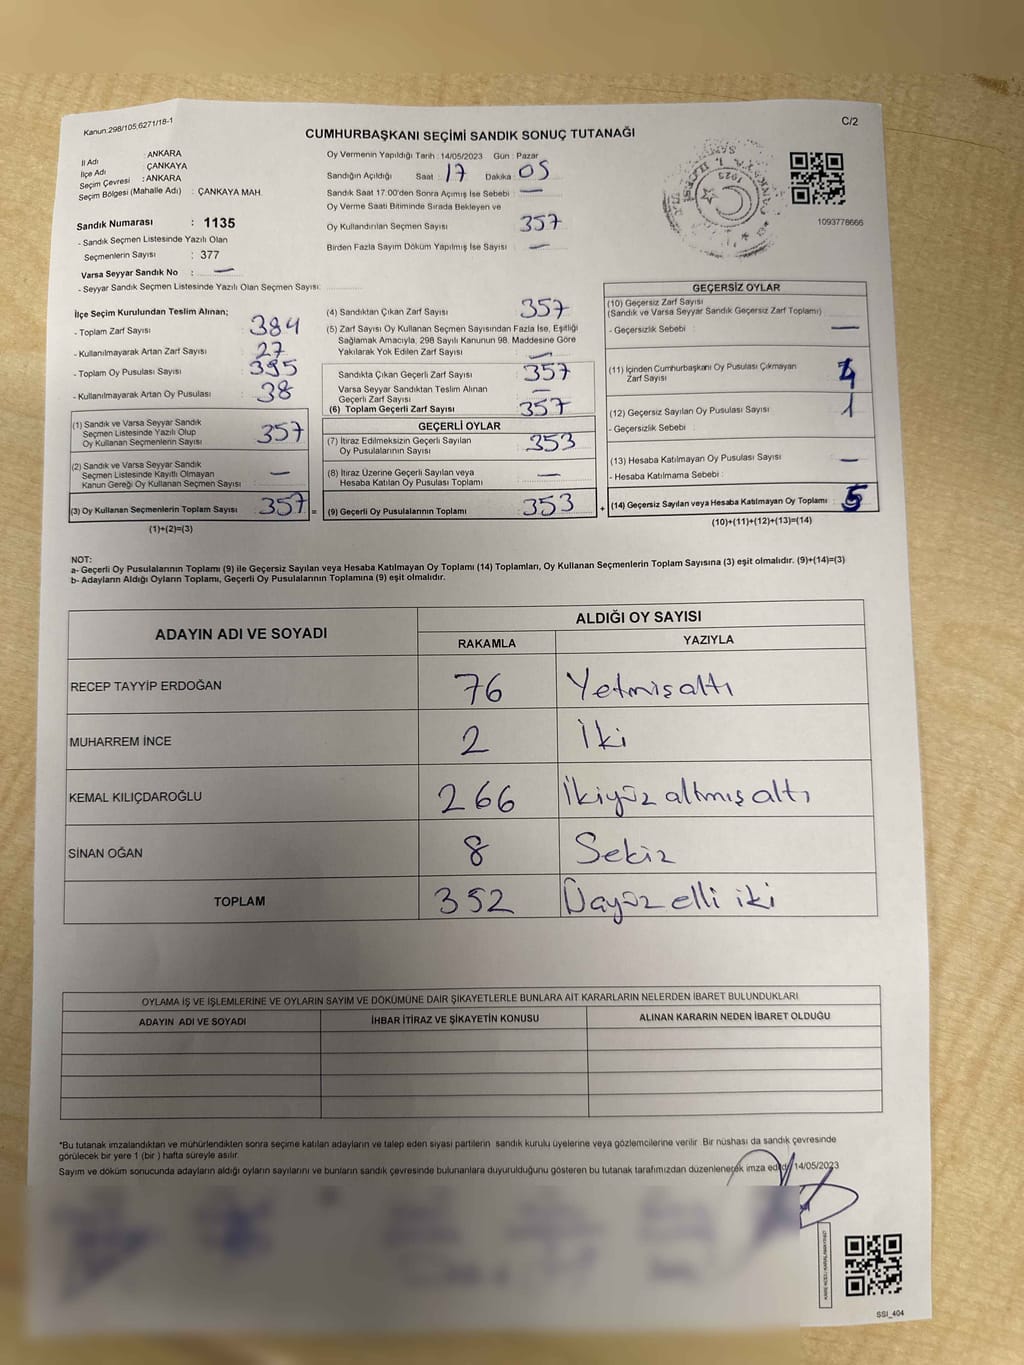 Kanun:298/105;6271/18-1
C/2
CUMHURBAŞKANI SEÇİMİ SANDIK SONUÇ TUTANAĞI
İl Adı : ANKARA
İlçe Adı : ÇANKAYA
Seçim Çevresi : ANKARA
Seçim Bölgesi (Mahalle Adı) : ÇANKAYA MAH.
Sandık Numarası : 1135
- Sandık Seçmen Listesinde Yazılı Olan
Seçmenlerin Sayısı : 377
Varsa Seyyar Sandık No : —
- Seyyar Sandık Seçmen Listesinde Yazılı Olan Seçmen Sayısı:
Oy Vermenin Yapıldığı Tarih : 14/05/2023 Gün : Pazar
Sandığın Açıldığı Saat : 17 Dakika : 05
Sandık Saat 17:00'den Sonra Açımış İse Sebebi : —
Oy Verme Saati Bitiminde Sırada Bekleyen ve
Oy Kullandırılan Seçmen Sayısı : 357
Birden Fazla Sayım Döküm Yapılmış İse Sayısı : —
1093778666
İlçe Seçim Kurulundan Teslim Alınan;
- Toplam Zarf Sayısı : 384
- Kullanılmayarak Artan Zarf Sayısı : 27
- Toplam Oy Pusulası Sayısı : 395
- Kullanılmayarak Artan Oy Pusulası : 38
(1) Sandık ve Varsa Seyyar Sandık
Seçmen Listesinde Yazılı Olup
Oy Kullanan Seçmenlerin Sayısı : 357
(2) Sandık ve Varsa Seyyar Sandık
Seçmen Listesinde Kayıtlı Olmayan
Kanun Gereği Oy Kullanan Seçmen Sayısı : —
(3) Oy Kullanan Seçmenlerin Toplam Sayısı : 357 =
(1)+(2)=(3)
(4) Sandıktan Çıkan Zarf Sayısı : 357
(5) Zarf Sayısı Oy Kullanan Seçmen Sayısından Fazla İse, Eşitliği
Sağlamak Amacıyla, 298 Sayılı Kanunun 98. Maddesine Göre
Yakılarak Yok Edilen Zarf Sayısı : —
Sandıkta Çıkan Geçerli Zarf Sayısı : 357
Varsa Seyyar Sandıktan Teslim Alınan
Geçerli Zarf Sayısı : —
(6) Toplam Geçerli Zarf Sayısı : 357
GEÇERLİ OYLAR
(7) İtiraz Edilmeksizin Geçerli Sayılan
Oy Pusulalarının Sayısı : 353
(8) İtiraz Üzerine Geçerli Sayılan veya
Hesaba Katılan Oy Pusulası Toplamı : —
(9) Geçerli Oy Pusulalarının Toplamı : 353 +
GEÇERSİZ OYLAR
(10) Geçersiz Zarf Sayısı
(Sandık ve Varsa Seyyar Sandık Geçersiz Zarf Toplamı)
- Geçersizlik Sebebi : —
(11) İçinden Cumhurbaşkanı Oy Pusulası Çıkmayan
Zarf Sayısı : 4
(12) Geçersiz Sayılan Oy Pusulası Sayısı : 1
- Geçersizlik Sebebi :
(13) Hesaba Katılmayan Oy Pusulası Sayısı : —
- Hesaba Katılmama Sebebi :
(14) Geçersiz Sayılan veya Hesaba Katılmayan Oy Toplamı : 5
(10)+(11)+(12)+(13)=(14)
NOT:
a- Geçerli Oy Pusulalarının Toplamı (9) ile Geçersiz Sayılan veya Hesaba Katılmayan Oy Toplamı (14) Toplamları, Oy Kullanan Seçmenlerin Toplam Sayısına (3) eşit olmalıdır. (9)+(14)=(3)
b- Adayların Aldığı Oyların Toplamı, Geçerli Oy Pusulalarının Toplamına (9) eşit olmalıdır.
ADAYIN ADI VE SOYADI
ALDIĞI OY SAYISI
RAKAMLA YAZIYLA
RECEP TAYYİP ERDOĞAN 76 Yetmişaltı
MUHARREM İNCE 2 İki
KEMAL KILIÇDAROĞLU 266 İkiyüz altmış altı
SİNAN OĞAN 8 Sekiz
TOPLAM 352 Üçyüz elli iki
OYLAMA İŞ VE İŞLEMLERİNE VE OYLARIN SAYIM VE DÖKÜMÜNE DAİR ŞİKAYETLERLE BUNLARA AİT KARARLARIN NELERDEN İBARET BULUNDUKLARI
ADAYIN ADI VE SOYADI İHBAR İTİRAZ VE ŞİKAYETİN KONUSU ALINAN KARARIN NEDEN İBARET OLDUĞU
*Bu tutanak imzalandıktan ve mühürlendikten sonra seçime katılan adayların ve talep eden siyasi partilerin sandık kurulu üyelerine veya gözlemcilerine verilir .Bir nüshası da sandık çevresinde
görülecek bir yere 1 (bir ) hafta süreyle asılır.
Sayım ve döküm sonucunda adayların aldığı oyların sayılarını ve bunların sandık çevresinde bulunanlara duyurulduğunu gösteren bu tutanak tarafımızdan düzenlenerek imza edildi 14/05/2023
SSI_404